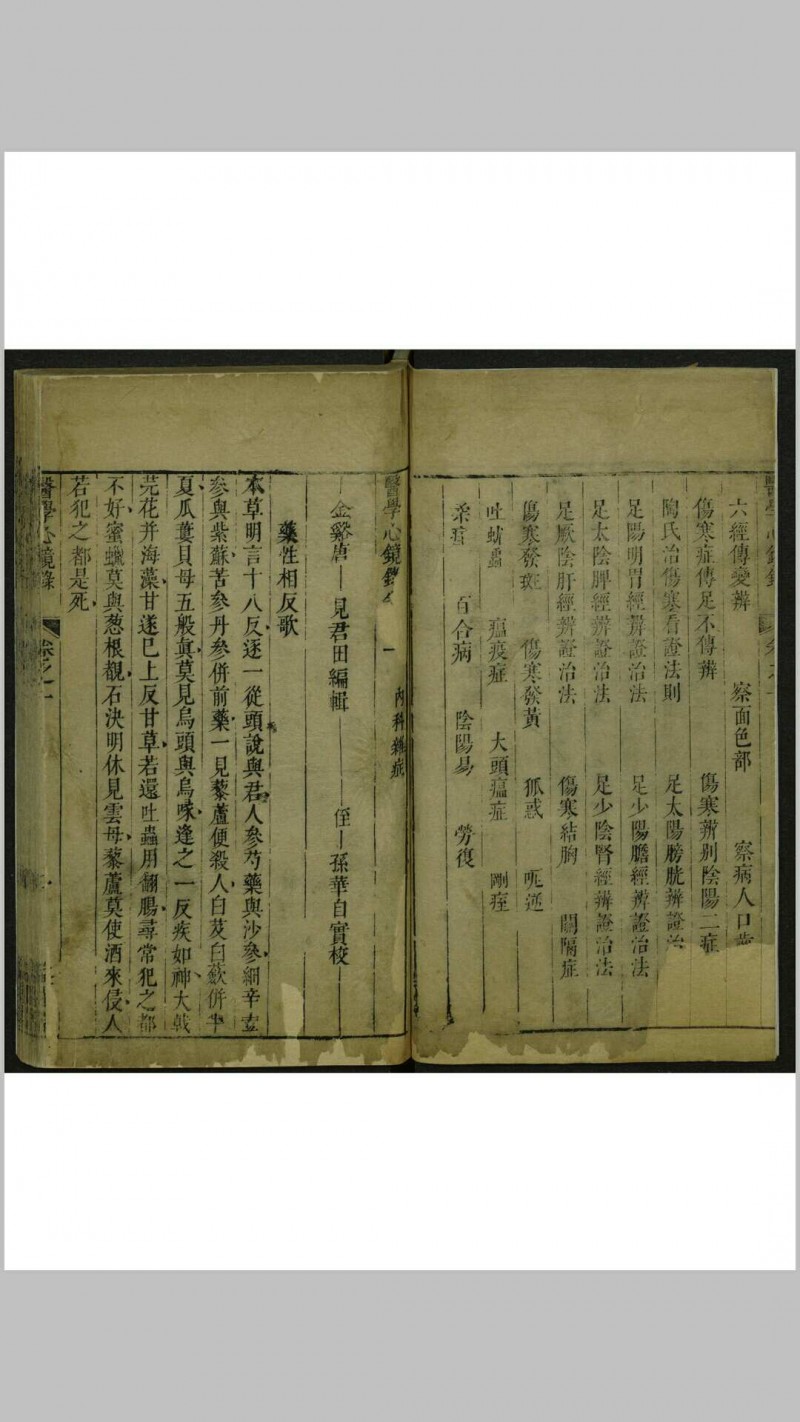 六經傳變辨 察面色部 察病人口
傷寒症傳足不傳辨 傷寒辨别陰陽二症
陶氏治傷寒看證法則 足太陽膀胱辨證治
足陽明胃經辨證治法 足少陽膽經辨證治法
足太陰脾經辨證治法 足少陰腎經辨證治法
足厥陰肝經辨證治法 傷寒結胸 關隔症
傷寒發斑 傷寒發黃 狐惑 呃逆
吐蚘 瘟疫症 大頭瘟症 剛痓
柔 百合病 陰陽易 勞復
醫學心鏡錄 一 內科雜症
金谿唐 見君田編輯 侄 孫華自實校
藥性相反歌
本草明言十八反逐一從頭說與君人參芍藥與沙參細辛玄
參與紫蘇苦參丹參併前藥一見藜蘆便殺人白芨白蘞併半
夏瓜蔞貝母五般真莫見烏頭與烏喙逢之一反疾如神大戟
芫花并海藻甘遂已上反甘草若還吐蟲用翻腸尋常犯之都
不好蜜蠟莫與葱根覩石決明休見雲母藜蘆莫使酒來侵人
若犯之都是死
醫學心鏡錄 卷之一